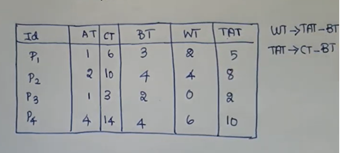 Id AT CT BT WT TAT
P1 1 6 3 2 5
P2 2 10 4 4 8
P3 1 3 2 0 2
P4 4 14 4 6 10
WT → TAT - BT
TAT → CT - BT